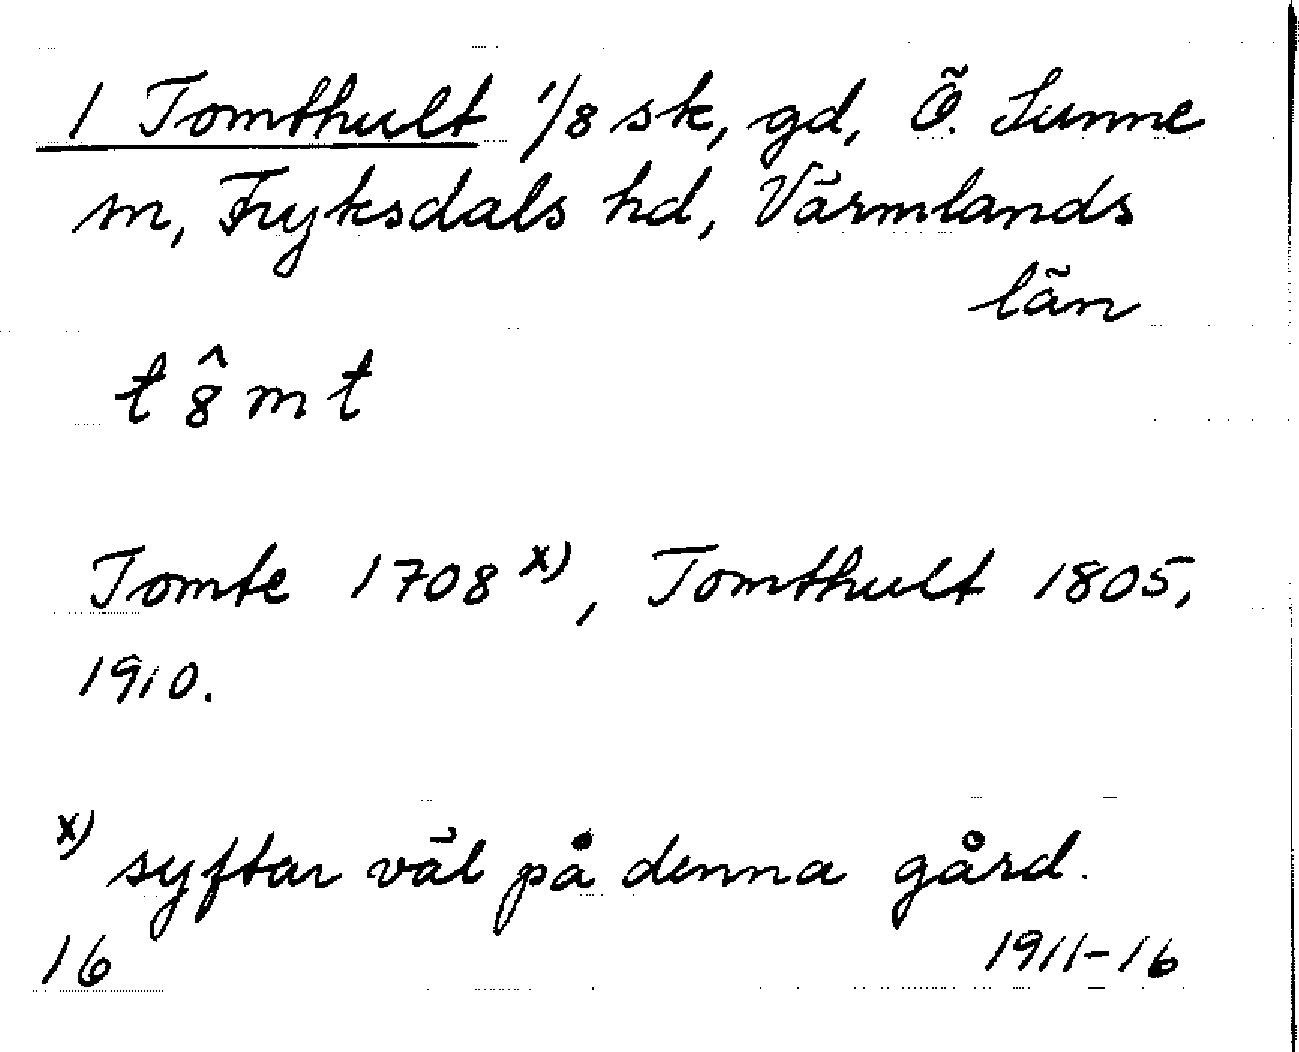 1 Tomthult 1/8 sk, gd, Ö. Sunne
sn, Fryksdals hd, Värmlands
län
t 8̂ m t
Tomte 1708 x), Tomthult 1805,
1910.
x) syftar väl på denna gård.
16 1911-16